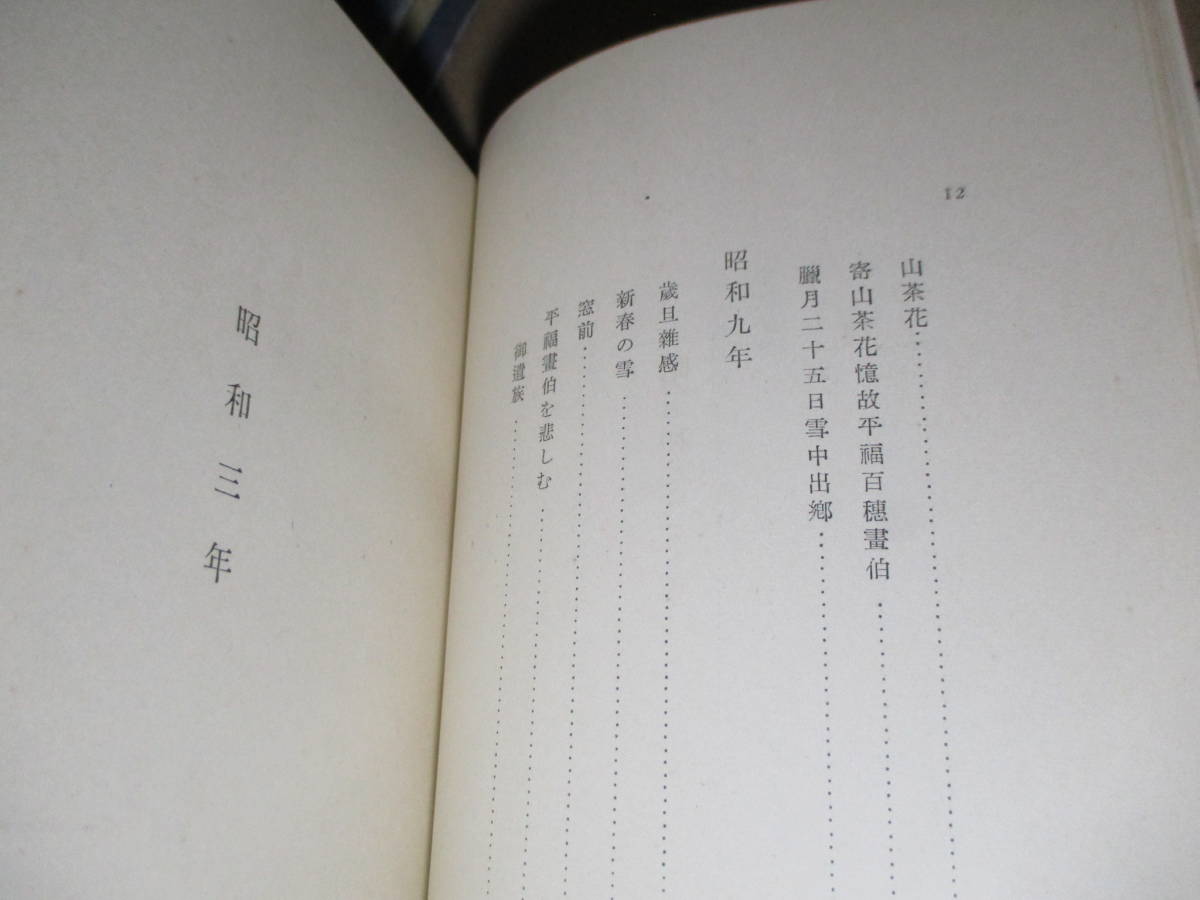 12
山茶花
寄山茶花憶故平福百穗畫伯
臘月二十五日雪中出鄕
昭和九年
歲旦雜感
新春の雪
窓前
平福畫伯を悲しむ
御遺族
昭和三年